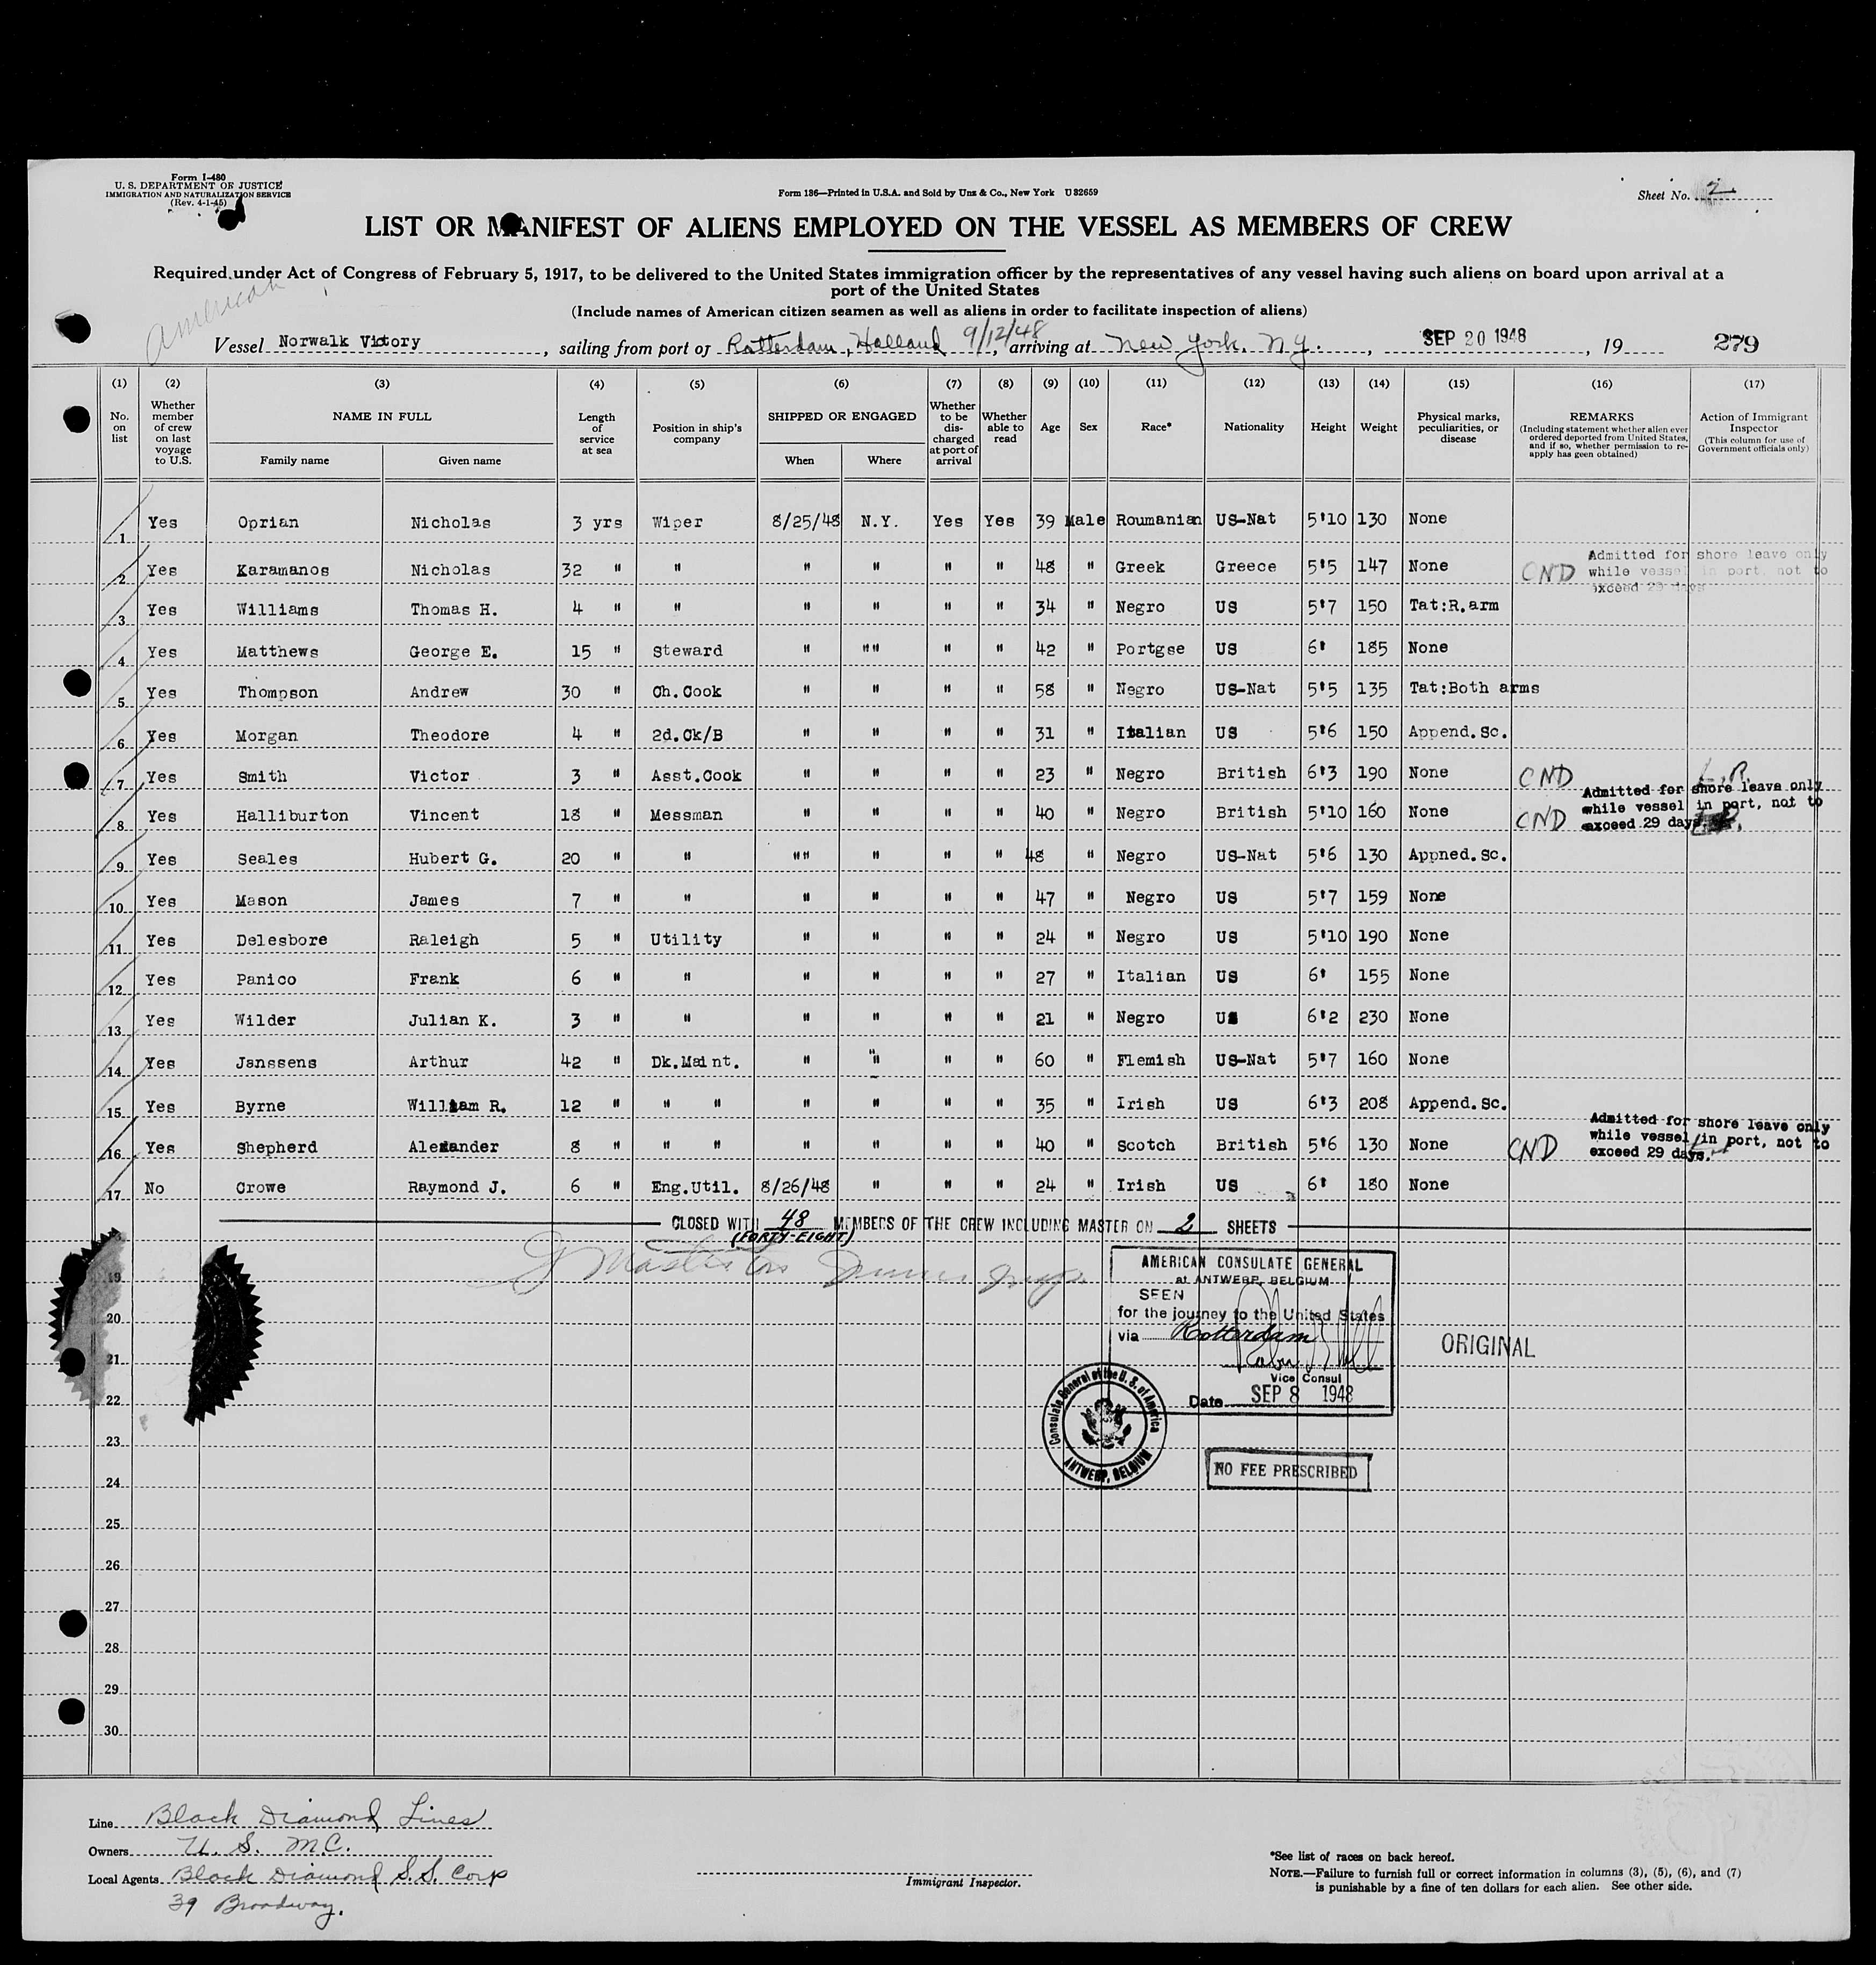 Form I-480
U. S. DEPARTMENT OF JUSTICE
IMMIGRATION AND NATURALIZATION SERVICE
(Rev. 4-1-45)
Form 136—Printed in U.S.A. and Sold by Unz & Co., New York U 82659
Sheet No. 2
LIST OR MANIFEST OF ALIENS EMPLOYED ON THE VESSEL AS MEMBERS OF CREW
Required under Act of Congress of February 5, 1917, to be delivered to the United States immigration officer by the representatives of any vessel having such aliens on board upon arrival at a
port of the United States
(Include names of American citizen seamen as well as aliens in order to facilitate inspection of aliens)
American
Vessel Norwalk Victory, sailing from port of Rotterdam, Holland 9/12/48, arriving at New York, N.Y., SEP 20 1948, 19 279
(1) (2) (3) (4) (5) (6) (7) (8) (9) (10) (11) (12) (13) (14) (15) (16) (17)
No. on list
Whether member of crew on last voyage to U.S.
NAME IN FULL
Family name Given name
Length of service at sea
Position in ship's company
SHIPPED OR ENGAGED
When Where
Whether to be discharged at port of arrival
Whether able to read
Age Sex Race* Nationality Height Weight
Physical marks, peculiarities, or disease
REMARKS
(Including statement whether alien ever ordered deported from United States, and if so, whether permission to re-apply has geen obtained)
Action of Immigrant Inspector
(This column for use of Government officials only)
1 Yes Oprian Nicholas 3 yrs Wiper 8/25/48 N.Y. Yes Yes 39 Male Roumanian US-Nat 5'10 130 None
2 Yes Karamanos Nicholas 32 " " " " " " 48 " Greek Greece 5'5 147 None CND Admitted for shore leave only while vessel in port, not to exceed 29 days
3 Yes Williams Thomas H. 4 " " " " " " 34 " Negro US 5'7 150 Tat:R.arm
4 Yes Matthews George E. 15 " Steward " "" " " 42 " Portgse US 6' 185 None
5 Yes Thompson Andrew 30 " Ch.Cook " " " " 58 " Negro US-Nat 5'5 135 Tat:Both arms
6 Yes Morgan Theodore 4 " 2d.Ck/B " " " " 31 " Italian US 5'6 150 Append.Sc.
7 Yes Smith Victor 3 " Asst.Cook " " " " 23 " Negro British 6'3 190 None CND
8 Yes Halliburton Vincent 18 " Messman " " " " 40 " Negro British 5'10 160 None CND Admitted for shore leave only while vessel in port, not to exceed 29 days.
9 Yes Seales Hubert G. 20 " " "" " " " 48 " Negro US-Nat 5'6 130 Appned.Sc.
10 Yes Mason James 7 " " " " " " 47 " Negro US 5'7 159 None
11 Yes Delesbore Raleigh 5 " Utility " " " " 24 " Negro US 5'10 190 None
12 Yes Panico Frank 6 " " " " " " 27 " Italian US 6' 155 None
13 Yes Wilder Julian K. 3 " " " " " " 21 " Negro US 6'2 230 None
14 Yes Janssens Arthur 42 " Dk.Maint. " " " " 60 " Flemish US-Nat 5'7 160 None
15 Yes Byrne William R. 12 " " " " " " " 35 " Irish US 6'3 208 Append.Sc.
16 Yes Shepherd Alexander 8 " " " " " " " 40 " Scotch British 5'6 130 None CND Admitted for shore leave only while vessel in port, not to exceed 29 days.
17 No Crowe Raymond J. 6 " Eng.Util. 8/26/48 " " " 24 " Irish US 6' 180 None
CLOSED WITH 48 MEMBERS OF THE CREW INCLUDING MASTER ON 2 SHEETS
(FORTY-EIGHT)
18
19
20
21
22
23
24
25
26
27
28
29
30
AMERICAN CONSULATE GENERAL
at ANTWERP, BELGIUM
SEEN
for the journey to the United States
via Rotterdam
Vice Consul
Date SEP 8 1948
ORIGINAL
Consulate General of the U. S. of America
ANTWERP, BELGIUM
NO FEE PRESCRIBED
Line Black Diamond Lines
Owners U. S. M.C.
Local Agents Black Diamond S.S. Corp
39 Broadway.
Immigrant Inspector.
*See list of races on back hereof.
NOTE.—Failure to furnish full or correct information in columns (3), (5), (6), and (7)
is punishable by a fine of ten dollars for each alien. See other side.